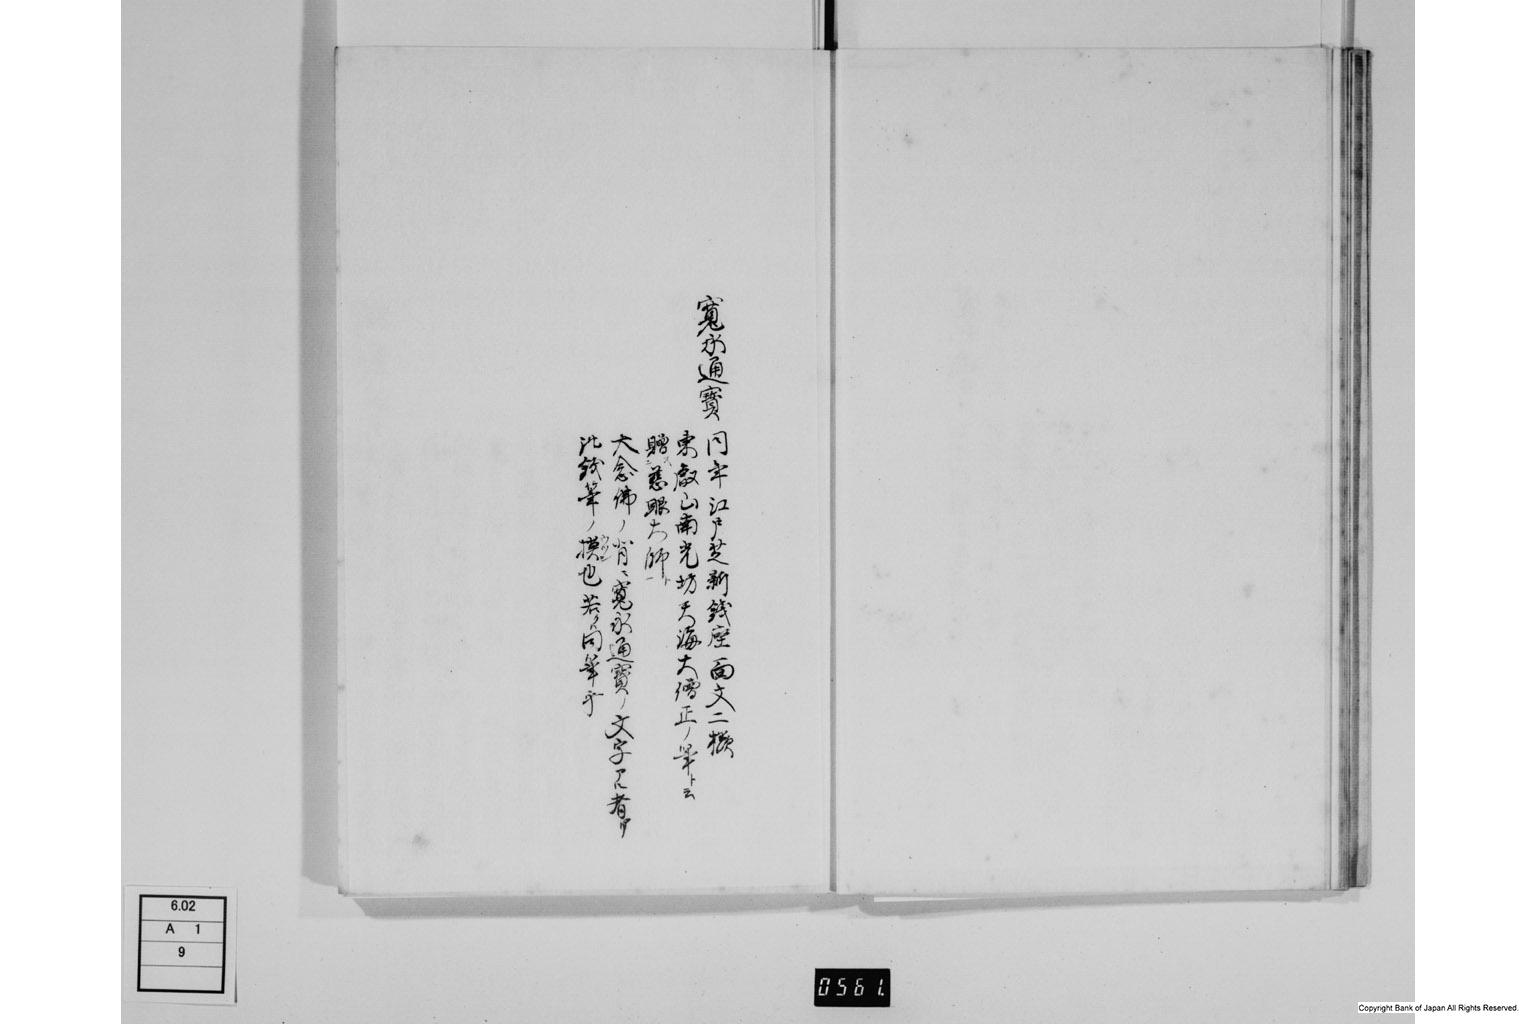 寛永通寳
同年江戸芝新銭座面文二様
東叡山南光坊天海大僧正ノ筆ト云
贈慈眼大師ト
大念佛ノ背ニ寛永通寳ノ文字アル者
此銭筆ノ模也若同筆乎
6.02
A 1
9
0561.
Copyright Bank of Japan All Rights Reserved.